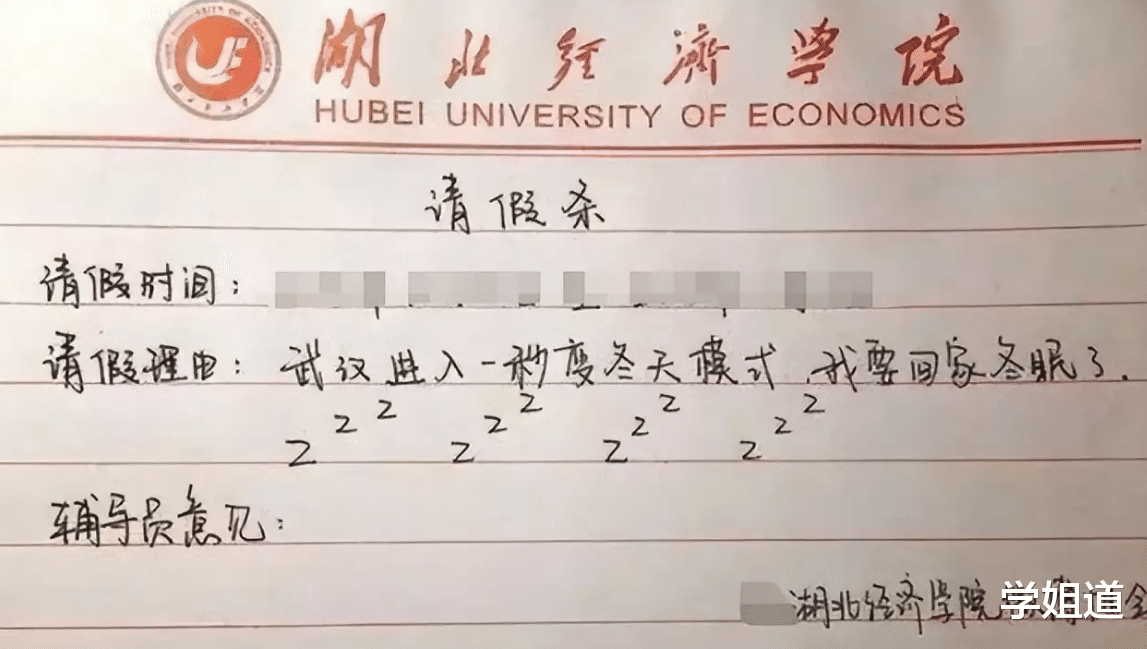 湖北经济学院
HUBEI UNIVERSITY OF ECONOMICS
请假条
请假时间：
请假理由：武汉进入一秒变冬天模式，我要回家冬眠了．
z z z z z z z z z z z z
辅导员意见：
湖北经济学院
学姐道